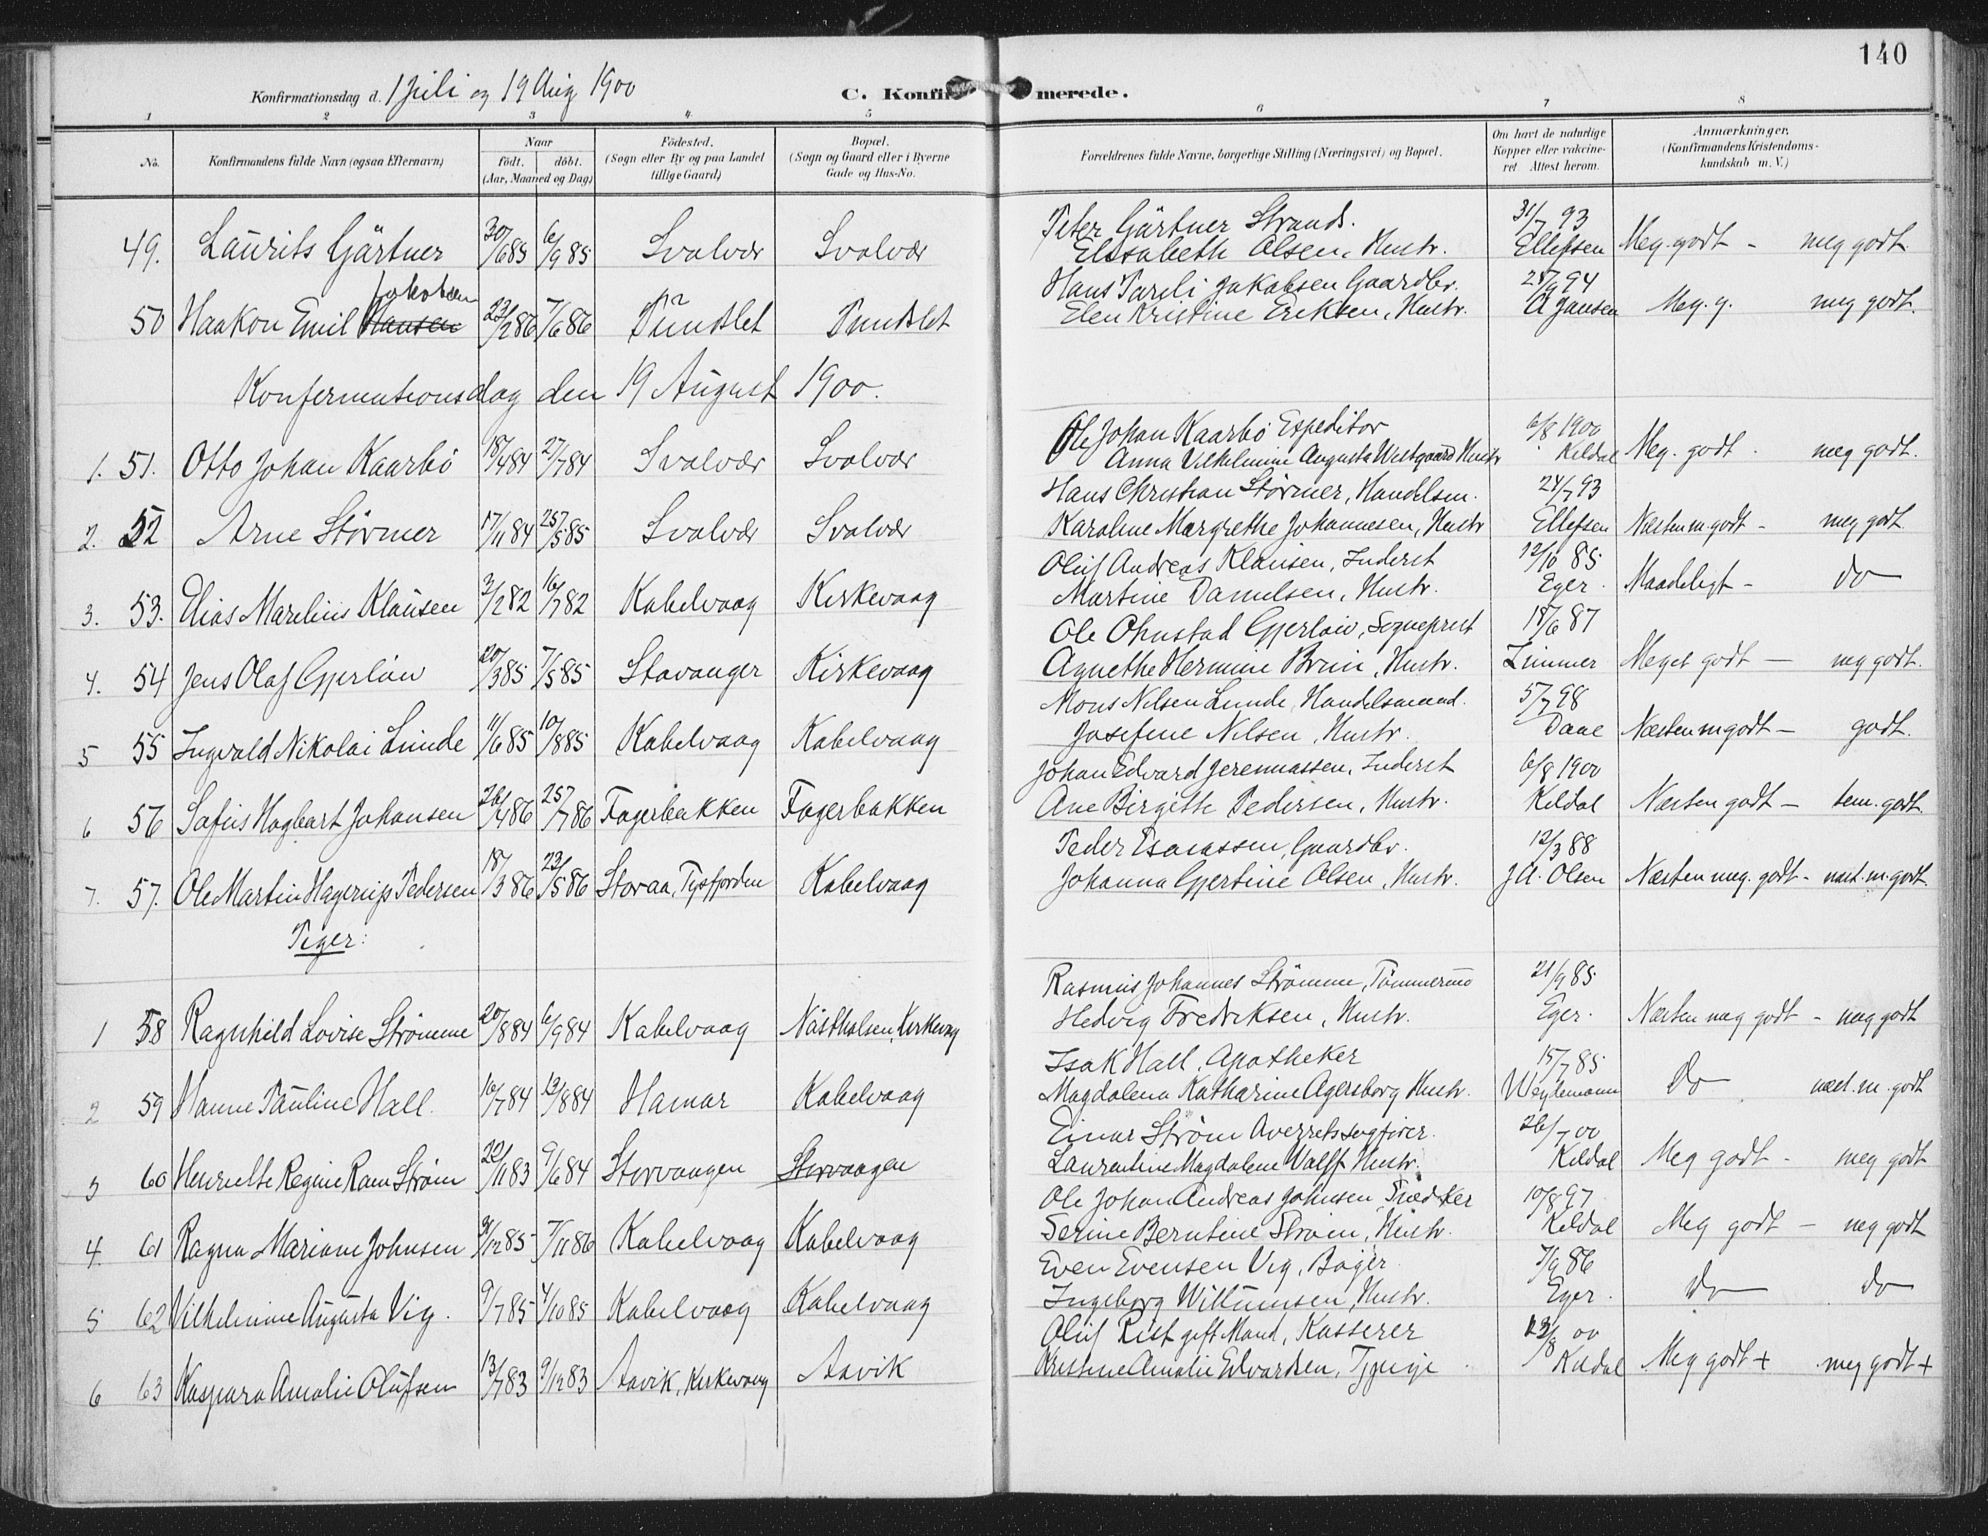 140
Konfirmationsdag d. 1 Juli og 19 Aug 1900
C. Konfirmerede.
1 2 3 4 5 6 7 8
No. Konfirmandens fulde Navn (ogsaa Efternavn) Naar födt. döbt. (Aar, Maaned og Dag) Födested. (Sogn eller By og paa Landet tillige Gaard) Bopæl. (Sogn og Gaard eller i Byerne Gade og Hus-No. Forældrenes fulde Navne, borgerlige Stilling (Næringsvei) og Bopæl. Om havt de naturlige Kopper eller vaccineret Attest herom. Anmærkninger. (Konfirmandens Kristendomskundskab m. V.)
Peter Gärtner Strands. 31/7 93
49. Laurits Gärtner 30/6 85 6/9 85 Svolvær Svolvær Elisabeth Olsen, Hustr. Ellefsen Meg. godt - meg godt.
Jakobsen Hans Jakobsen Gaardbr. 94
50 Haakon Emil Hansen 23/2 86 7/6 86 Elen Kristine Hustr. A Jansen Meg. g. meg godt.
Konfermationsdag den 19 August 1900.
Ole Johan Kaarbö Expeditör 6/8 1900
1. 51. Otto Johan Kaarbö 18/4 84 27/7 84 Svolvær Svolvær Anna Vilhelmine Augusta Westgaard Hustr Kildal Meg. godt. meg godt.
Hans Christian Störmer, Handelsm. 24/7 93
2. 52 Arne Störmer 17/11 84 25/5 85 Svolvær Svolvær Karoline Margrethe Johannesen, Hustr Ellefsen Næsten m. godt - meg godt
Oluf Andreas Klausen, Inderst 12/10 85
3. 53. Elias Marelius Klausen 2/2 82 16/7 82 Kabelvaag Kirkevaag Martine Danielsen, Hustr. Eger. Maadeligt - do
Ole Ohnstad Gjerløw, Sogneprest 18/6 87
4. 54 Jens Olaf Gjerløw 20/3 85 7/5 85 Stavanger Kirkevaag Agnethe Hermine Brun, Hustr. Zimmer Meget godt - meg godt.
Mons Nilsen Lunde, Handelsmand. 5/7 98
5 55 Ingvald Nikolai Lunde 11/6 85 10/8 85 Kabelvaag Kabelvaag Josefine Nilsen, Hustr. Daae Næsten m godt - godt.
Johan Edvard Jeremiassen, Inderst 6/8 1900
6 56 Sofus Hagbart Johansen 26/4 86 25/7 86 Fagerbakken Fagerbakken Ane Birgitte Pedersen, Hustr. Kildal Næsten godt - tem. godt.
Peder Esaiassen, Gaardbr. 12/3 88
7. 57. Ole Martin Hagerup Pedersen 18/3 86 23/5 86 Storaa, Tysfjorden Kabelvaag Johanna Gjertine Olsen, Hustr. J A. Olsen Næsten meg. godt - næst. m. godt.
Piger:
Rasmus Johannes Strömme, Tömmermd 21/9 85
1 58 Ragnhild Lovise Strömme 20/8 84 6/9 84 Kabelvaag Kirkevaag Hedvig Fredriksen, Hustr. Eger. Næsten meg godt - meg godt
Isak Hall, Apotheker 15/7 85
2 59 Hanne Pauline Hall. 16/7 84 12/8 84 Hamar Kabelvaag Magdalena Katharine Agersborg Hustr. Weydemann Do næst. m. godt
Einar Ström Overretssagförer. 26/7 00
3 60 Henriette Regine Ström 22/11 83 9/6 84 Storvaagen Storvaagen Laurentine Magdalene Hustr. Kildal Meg godt - meg godt
Ole Johan Andreas Johnsen, Snedker 10/8 97
4. 61 Ragna Mariane Johnsen 9/12 85 7/11 86 Kabelvaag Kabelvaag Serine Berntine Ström, Hustr. Kildal Meg godt - meg godt
Even Evensen Vig, Bager. 7/9 86
5 62 Vilhelmine Augusta Vig. 9/7 85 4/10 85 Kabelvaag Kabelvaag Ingeborg Willumsen, Hustr. Eger. do do
Oluf Rist gift Mand, Kasserer 13/8 00
6 63 Kaspara Amalie Olufsen 13/7 83 9/12 83 Aavik, Kirkevaag Aavik Kristine Amalie Edvardsen, Kildal Meg godt + meg godt +